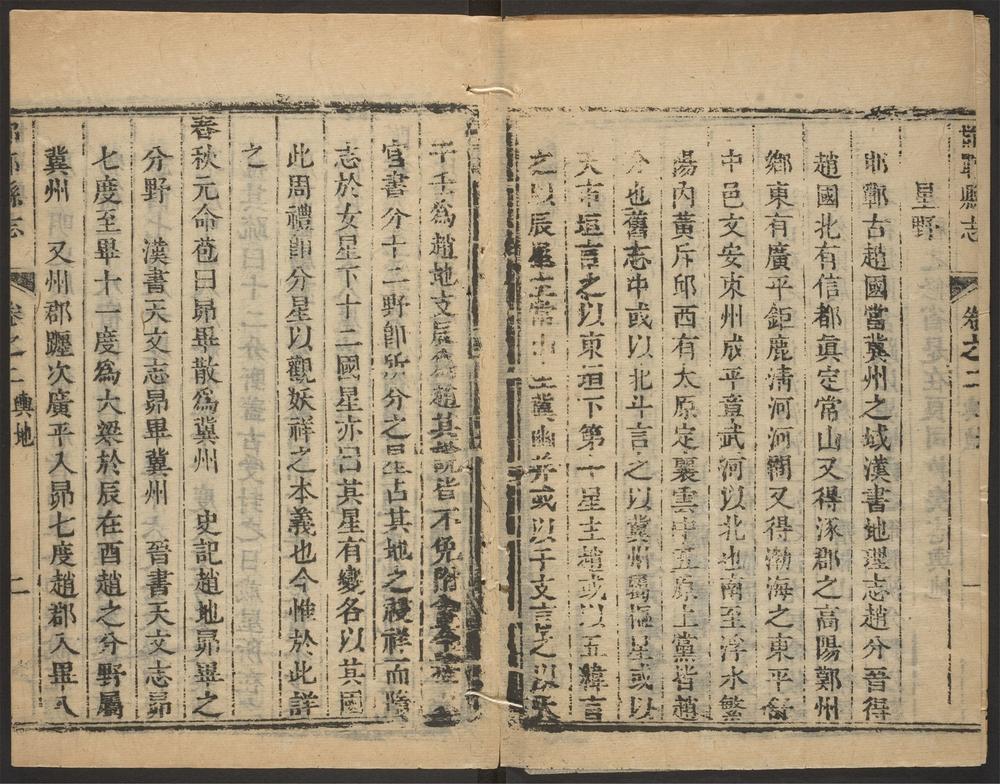 邯鄲縣志 卷之二 一
星野
邯鄲古趙國當冀州之域漢書地理志趙分晉得
趙國北有信都眞定常山又得涿郡之高陽鄭州
鄉東有廣平鉅鹿淸河河間又得渤海之東平舒
中邑文安束州成平章武河以北也南至浮水繁
陽內黃斥邱西有太原定襄雲中五原上黨皆趙
分也舊志中或以北斗言之以冀州屬樞星或以
天市垣言之以東垣下第十星主趙或以五緯言
之以辰星主常山主冀幽并或以干支言之以天
干壬爲趙地支辰爲趙其說皆不免附會今
官書分十二野卽所分之星占其地之祲祥而隋
志於女星下十二國星亦曰其星有變各以其國
此周禮卽分星以觀妖祥之本義也今惟於此詳
之
春秋元命苞曰昴畢散爲冀州 史記趙地昴畢之
分野 漢書天文志昴畢冀州 晉書天文志昴
七度至畢十一度爲大梁於辰在酉趙之分野屬
冀州 又州郡躔次廣平入昴七度趙郡入畢八
縣志 卷之二 輿地 二